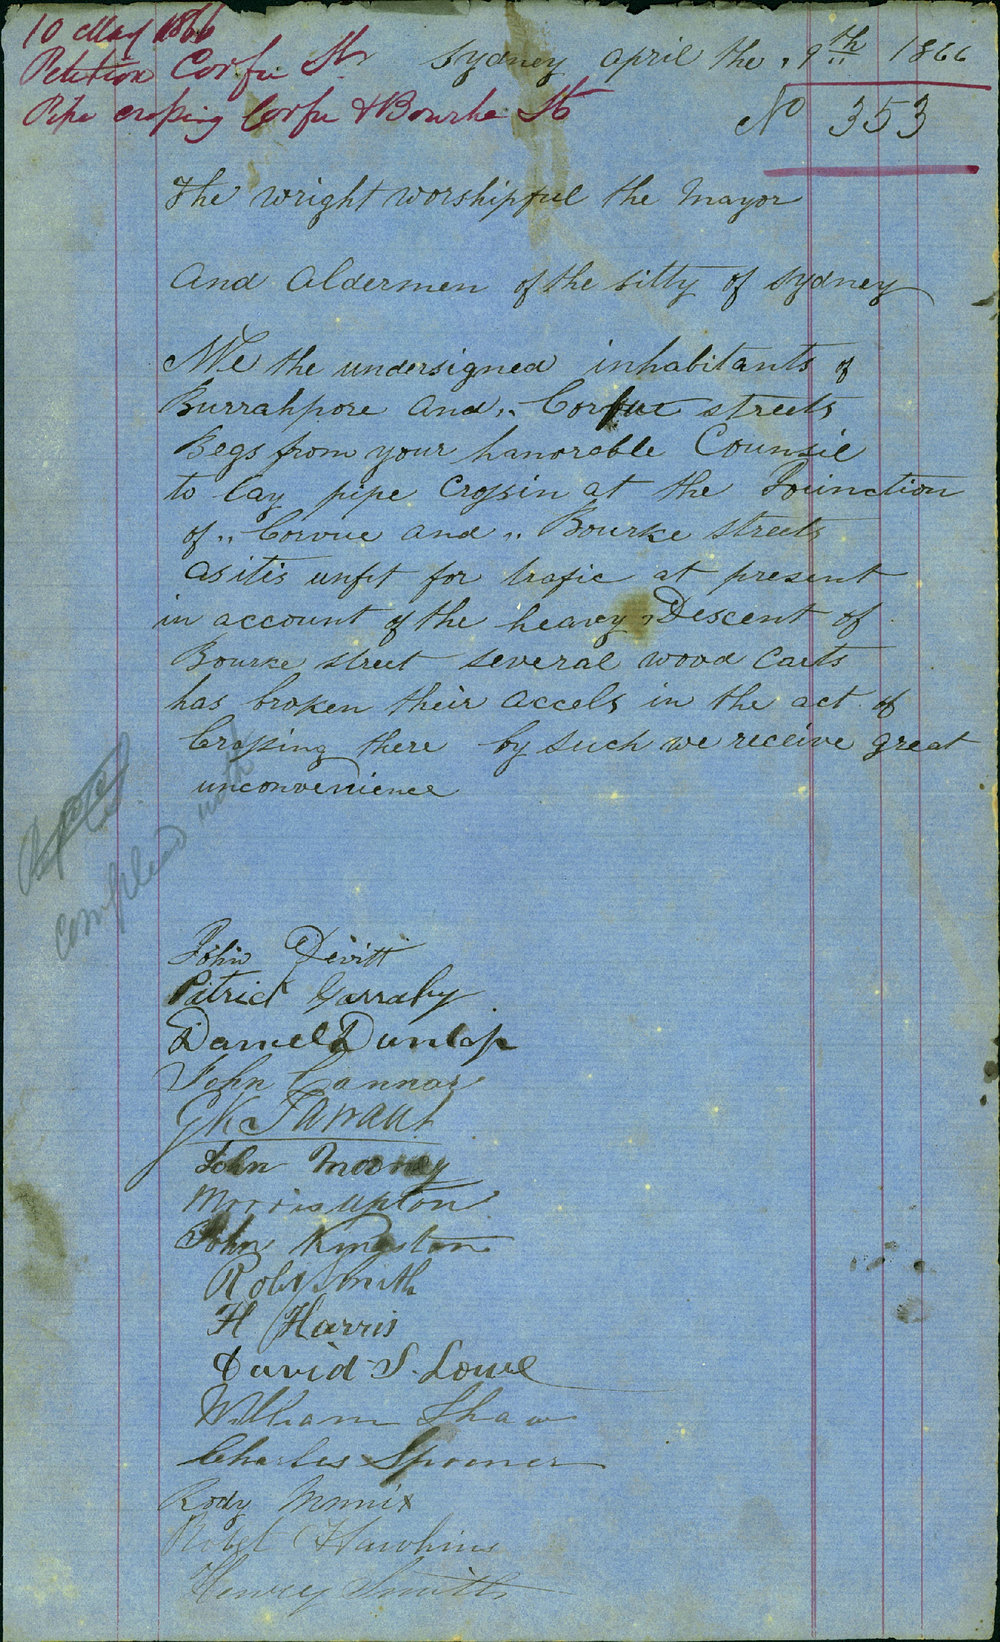 10 May 1866
Petition Corfu St
Pipe crossing Corfu & Bourke St
Sydney april the 9th 1866
No 353
The wright worshipful the Mayor
And Aldermen of the sitty of Sydney
We the undersigned inhabitants of
Burrahpore and Corfue streets
Begs from your hanorable Counsil
to lay pipe Crossin at the Jounction
of Corvue and Bourke streets
as it is unfit for trafic at present
in account of the heavey Descent of
Bourke street several wood Carts
has broken their accels in the act of
Crossing there by such we receive great
unconvenience
complied with
John Devitt
Patrick Garrahy
Daniel Dunlop
John Connor
G K
John Mooney
Morris Upton
John Kingston
Robt Smith
H Harris
David S. Lowe
William Shaw
Charles Spooner
Rody Minnix
Robt Hawkins
Henrey Smith